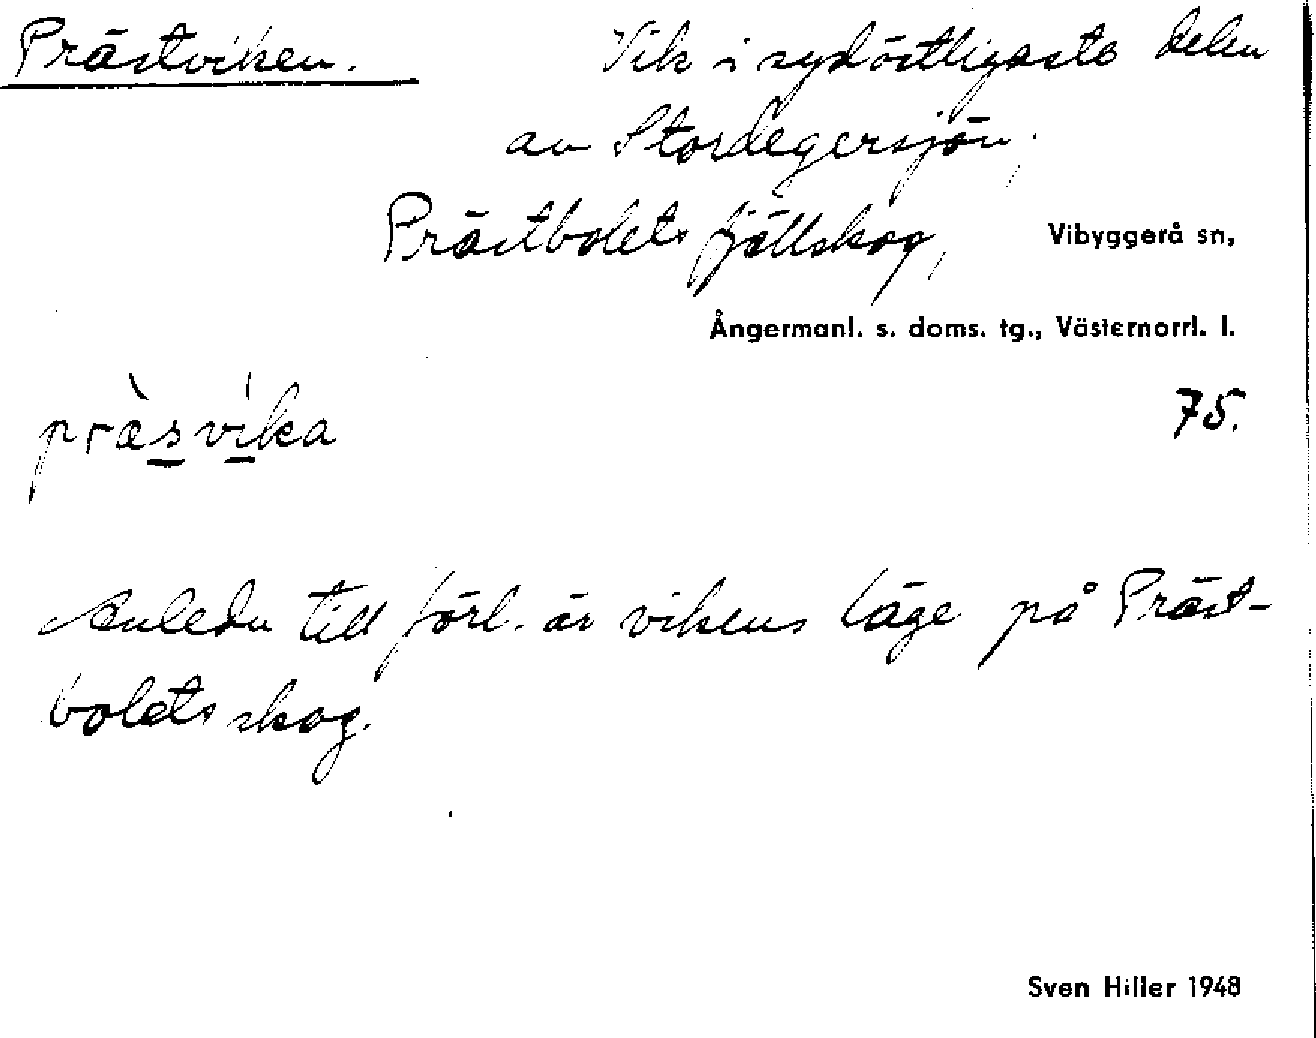 Prästviken. Vik i sydöstligaste delen
av Stordegersjön,
Prästbolets fjällskog, Vibyggerå sn,
Ångermanl. s. doms. tg., Västernorrl. l.
præ̀svíka 75.
Anledn till förl. är vikens läge på Präst-
bolets skog.
Sven Hiller 1948